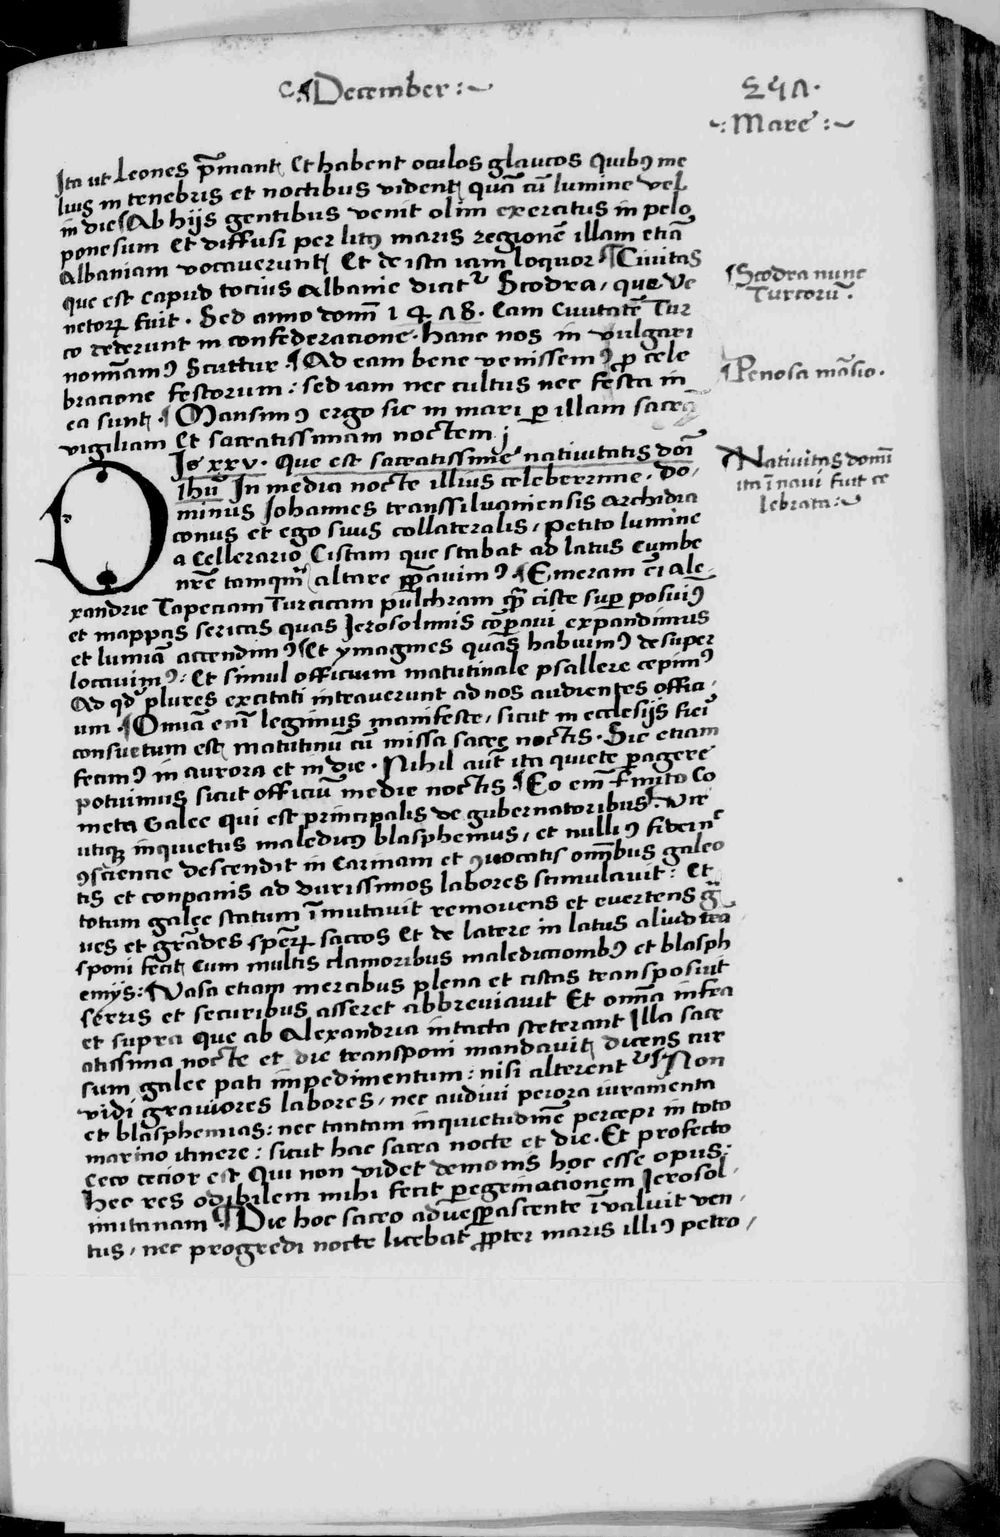 December :~
257.
~: Mare :~
Ita ut Leones p̄mant Et habent oculos glaucos quibꝯ me
lius in tenebris et noctibus vident quā cū lumine vel
in die ¶ Ab hijs gentibus venit olim exercitus in pelo
ponesum Et diffusi per litꝯ maris regionē illam etiā
Albaniam vocaverunt Et de ista iam loquor ¶ Civitas
que est capud tocius Albanie dicitᷣ Scodra, que Ve
netoꝝ fuit. Sed anno domī 1478. Eam Civitatē Tur
co rederunt in confederacione. hanc nos in vulgari
nomīamꝯ Scuttur. ¶ Ad eam bene venissemꝯ ꝓ cele
bracione festorum: sed iam nec cultus nec festa in
ea sunt. ¶ Mansimꝯ ergo sic in mari ꝑ illam sacrā
vigiliam Et sacratissimam noctem;
¶ Scodra nunc
Turcorū.
¶ Penosa māsio.
DIe xxv. Que est sacratissime nativitatis domī
ihū In media nocte illius celeberrime. Do,
minus Johannes transsilvaniensis Archidia
conus et ego suus collateralis, petito lumine
a Cellerario Cistam que stabat ad latus Cumbe
nrē tamqm̄ altare ꝑꝑavimꝯ. ¶ Emeram ēī Ale,
xandrie Tapeciam Turcicam pulchram qm̄ ciste suꝑ posuiꝯ
et mappas sericas quas Jerosolimis cōꝑavi expandimus
et lumīa accendimꝯ ¶ Et ymagines quas habuimꝯ desuper
locavimꝯ: Et simul officium matutinale psallere cepimꝯ
Ad qd plures excitati intraverunt ad nos audientes offici,
um. ¶ Omīa enī legimus manifeste, sicut in ecclesijs fieī
consuetum est matutinū cū missa sacre noctis. Sic etiam
fecimꝯ in aurora et in die. Nihil aūt ita quiete ꝑagere
potuimus sicut officiū medie noctis. ¶ Eo em̄ finito Co
meta Galee qui est principalis de gubernatoribus. Vir
utiqꝫ inquietus maledicꝯ blasphemus, et nulliꝯ fidei nc̄
ꝯsciencie descendit in Carinam et ꝯvocatis om̄ibus galeo
tis et conpanis ad durissimos labores stimulavit: Et
totum galee statum īmutavit removens et evertens gͣ
ves et grādes speꝝ saccos Et de latere in latus aliud tra
sponi fecit Cum multis clamoribus maledictiombꝯ et blasph
emijs: Vasa etiam mercibus plena et cistas transposuit
serris et securibus asseret abbreviavit Et omīa infra
et supra que ab Alexandria intacta steterant Illa sacr
atissima nocte et die transponi mandavit dicens cur
sum galee pati impedimentum: nisi alterentᷣ ¶ Non
vidi graviores labores, nec audivi peiora iuramenta
et blasphemias: nec tantam inquietudinē percepi in toto
marino itinere: sicut hac sacra nocte et die. Et profecto
ceco cecior est Qui non videt demonis hoc esse opus.
Hec res odibilem mihi fecit ꝑegrinacionem Jerosol,
imitanam ¶ Die hoc sacro advesꝑascente īvaluit ven,
tus, nec progredi nocte licebat ꝓpter maris illiꝯ petro,
Nativitas domī
ita ī navi fuit ce
lebrata:~